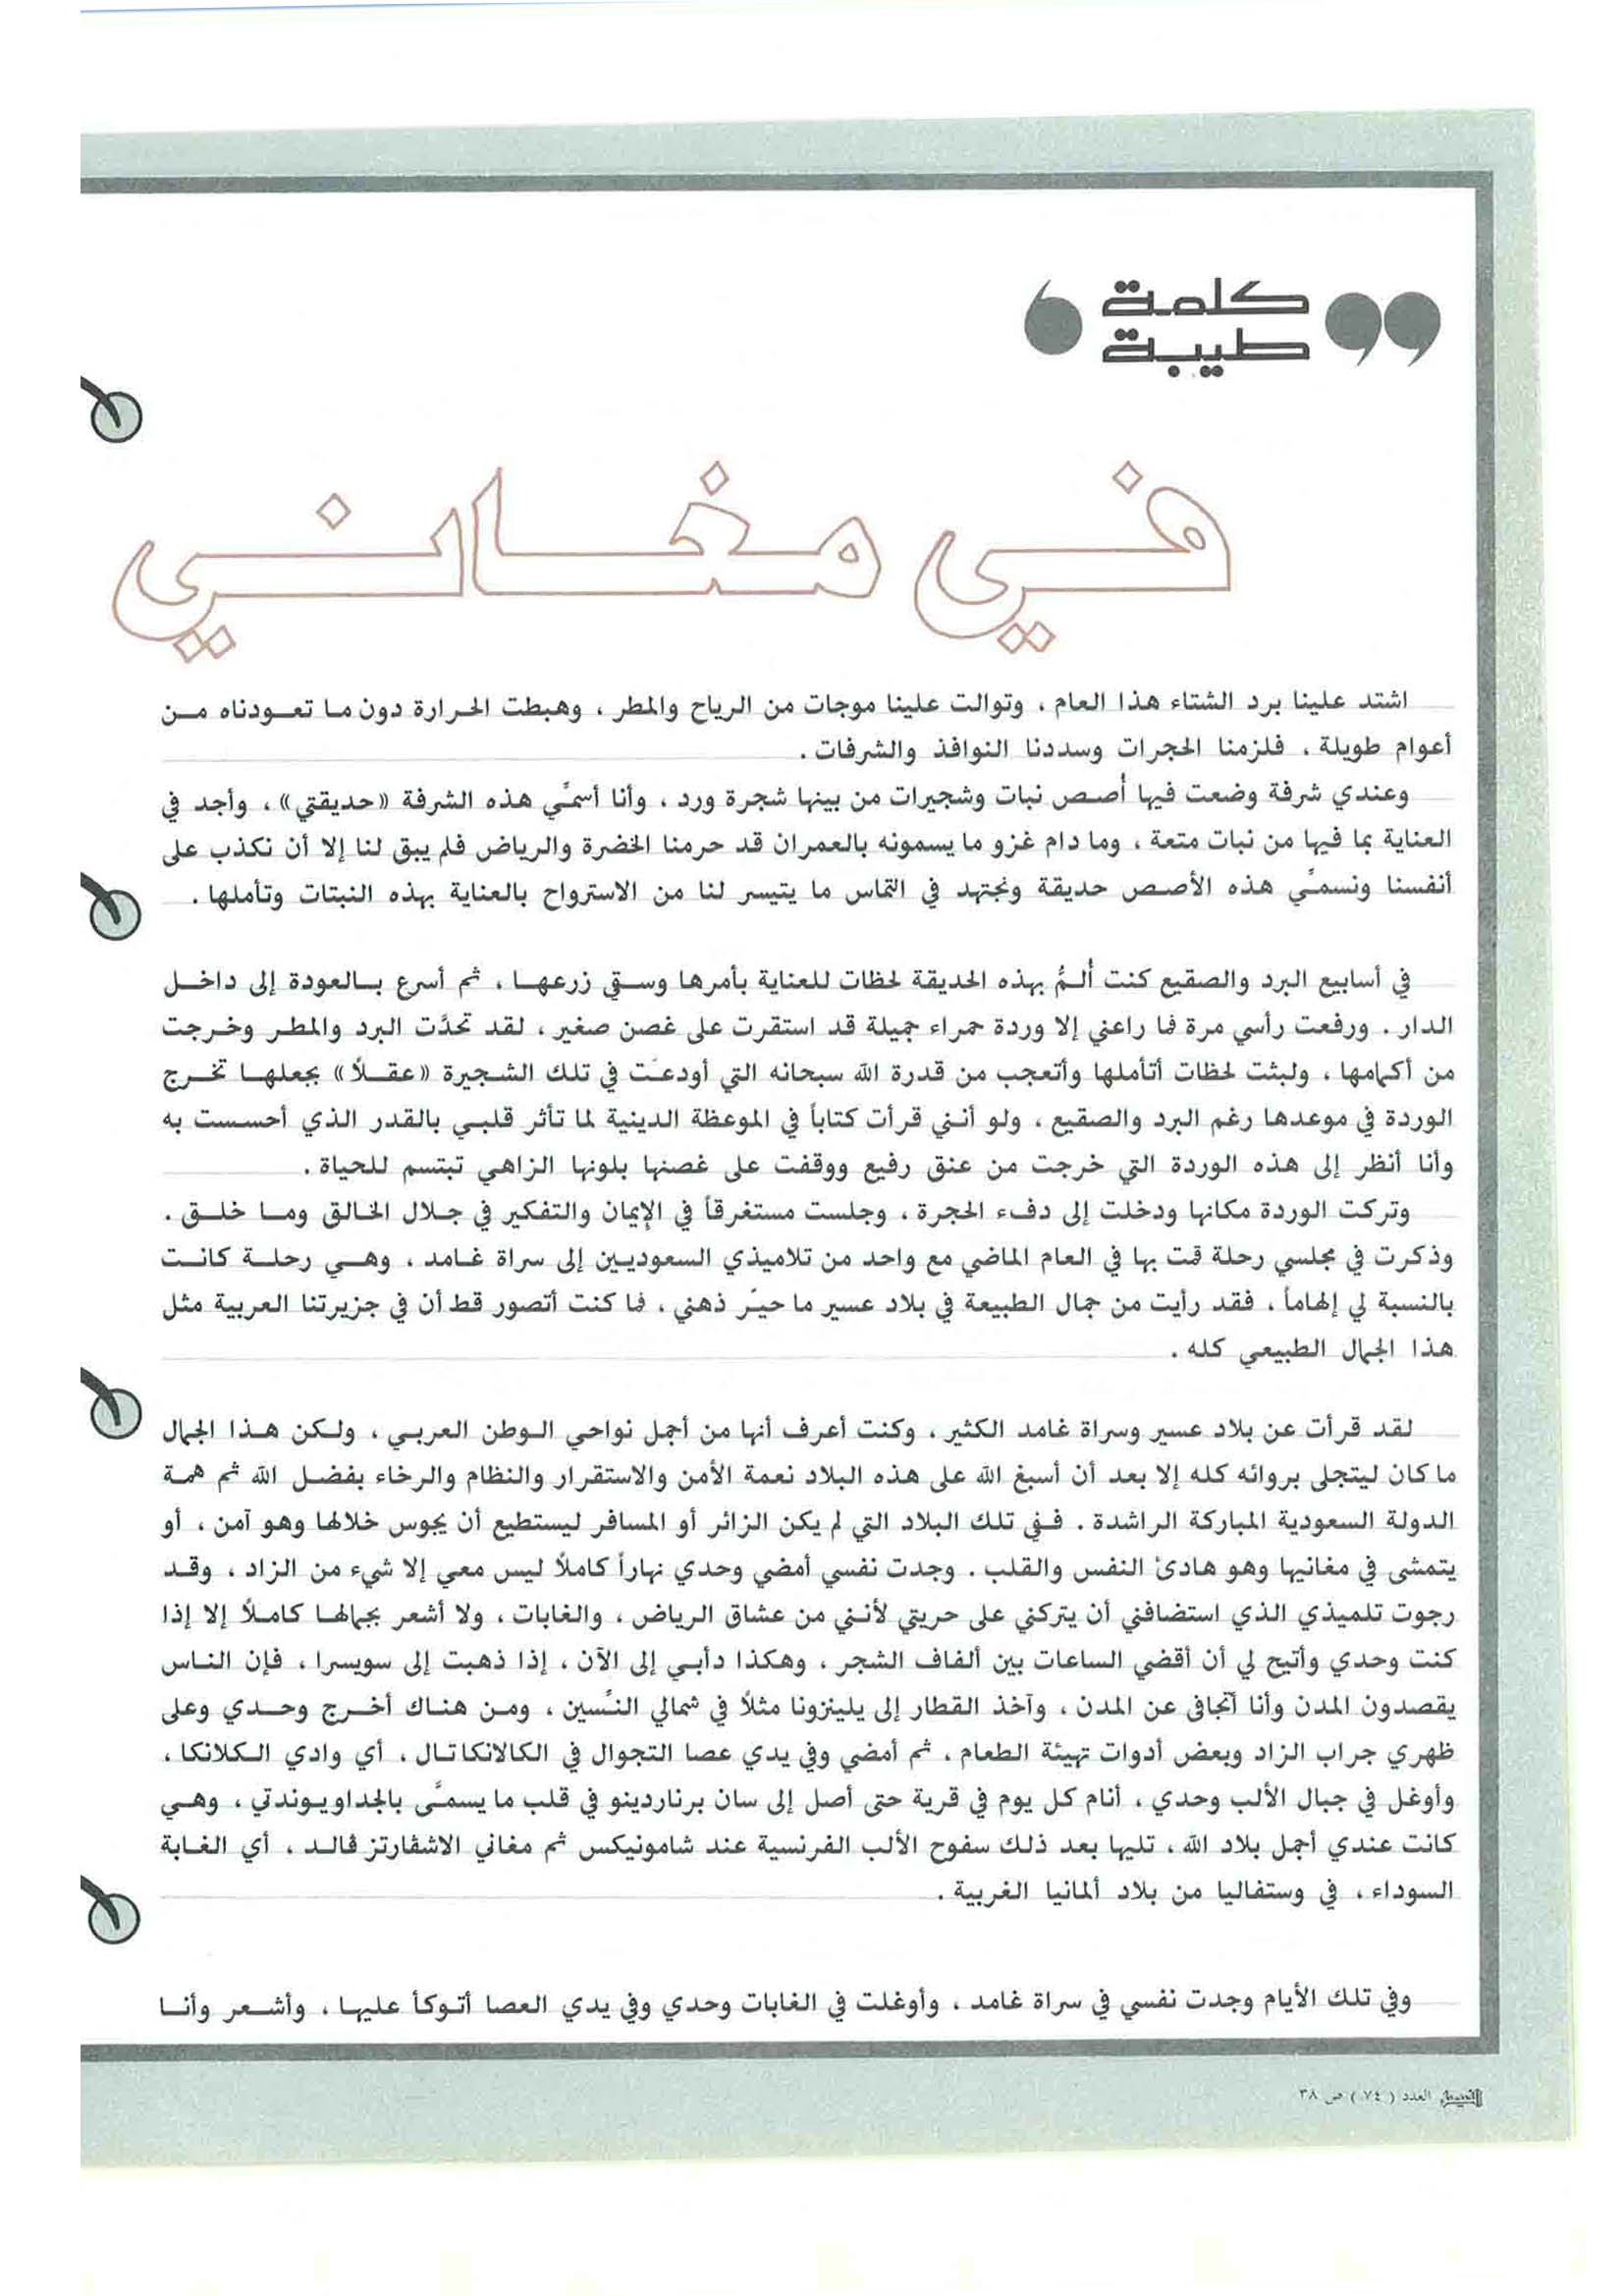 كلمة
طيبة
في مغاني
اشتد علينا برد الشتاء هذا العام ، وتوالت علينا موجات من الرياح والمطر ، وهبطت الحرارة دون ما تعودناه من
أعوام طويلة ، فلزمنا الحجرات وسددنا النوافذ والشرفات .
وعندي شرفة وضعت فيها أُصص نبات وشجيرات من بينها شجرة ورد ، وأنا أسمّي هذه الشرفة «حديقتي» ، وأجد في
العناية بما فيها من نبات متعة ، وما دام غزو ما يسمونه بالعمران قد حرمنا الخضرة والرياض فلم يبق لنا إلا أن نكذب على
أنفسنا ونسمّي هذه الأصص حديقة ونجتهد في التماس ما يتيسر لنا من الاسترواح بالعناية بهذه النبتات وتأملها .
في أسابيع البرد والصقيع كنت أُلمُّ بهذه الحديقة لحظات للعناية بأمرها وسقي زرعها ، ثم أسرع بالعودة إلى داخل
الدار . ورفعت رأسي مرة فما راعني إلا وردة حمراء جميلة قد استقرت على غصن صغير ، لقد تحدّت البرد والمطر وخرجت
من أكمامها ، ولبثت لحظات أتأملها وأتعجب من قدرة الله سبحانه التي أودعت في تلك الشجيرة «عقلاً» يجعلها تخرج
الوردة في موعدها رغم البرد والصقيع ، ولو أنني قرأت كتاباً في الموعظة الدينية لما تأثر قلبي بالقدر الذي أحسست به
وأنا أنظر إلى هذه الوردة التي خرجت من عنق رفيع ووقفت على غصنها بلونها الزاهي تبتسم للحياة .
وتركت الوردة مكانها ودخلت إلى دفء الحجرة ، وجلست مستغرقاً في الإيمان والتفكير في جلال الخالق وما خلق .
وذكرت في مجلسي رحلة قمت بها في العام الماضي مع واحد من تلاميذي السعوديين إلى سراة غامد ، وهي رحلة كانت
بالنسبة لي إلهاماً ، فقد رأيت من جمال الطبيعة في بلاد عسير ما حيّر ذهني ، فما كنت أتصور قط أن في جزيرتنا العربية مثل
هذا الجمال الطبيعي كله .
لقد قرأت عن بلاد عسير وسراة غامد الكثير ، وكنت أعرف أنها من أجمل نواحي الوطن العربي ، ولكن هذا الجمال
ما كان ليتجلى بروائه كله إلا بعد أن أسبغ الله على هذه البلاد نعمة الأمن والاستقرار والنظام والرخاء بفضل الله ثم همة
الدولة السعودية المباركة الراشدة . ففي تلك البلاد التي لم يكن الزائر أو المسافر ليستطيع أن يجوس خلالها وهو آمن ، أو
يتمشى في مغانيها وهو هادئ النفس والقلب . وجدت نفسي أمضي وحدي نهاراً كاملاً ليس معي إلا شيء من الزاد ، وقد
رجوت تلميذي الذي استضافني أن يتركني على حريتي لأنني من عشاق الرياض ، والغابات ، ولا أشعر بجمالها كاملاً إلا إذا
كنت وحدي وأتيح لي أن أقضي الساعات بين ألفاف الشجر ، وهكذا دأبي إلى الآن ، إذا ذهبت إلى سويسرا ، فإن الناس
يقصدون المدن وأنا أتجافى عن المدن ، وآخذ القطار إلى يلينزونا مثلاً في شمالي التّسين ، ومن هناك أخرج وحدي وعلى
ظهري جراب الزاد وبعض أدوات تهيئة الطعام ، ثم أمضي وفي يدي عصا التجوال في الكالانكاتال ، أي وادي الكلانكا ،
وأوغل في جبال الألب وحدي ، أنام كل يوم في قرية حتى أصل إلى سان برناردينو في قلب ما يسمّى بالجداويوندتي ، وهي
كانت عندي أجمل بلاد الله ، تليها بعد ذلك سفوح الألب الفرنسية عند شامونيكس ثم مغاني الاشڤارتز ڤالد ، أي الغابة
السوداء ، في وستفاليا من بلاد ألمانيا الغربية .
وفي تلك الأيام وجدت نفسي في سراة غامد ، وأوغلت في الغابات وحدي وفي يدي العصا أتوكأ عليها ، وأشعر وأنا
الفيصل العدد ( ٧٤ ) ص ٣٨